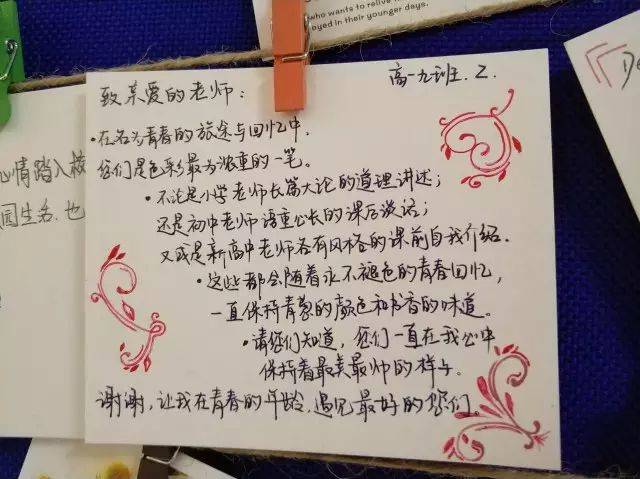 who wants to relive
oyed in their younger days.
高一九班. Z.
致亲爱的老师：
·在名为青春的旅途与回忆中，
您们是色彩最为浓重的一笔。
·不论是小学老师长篇大论的道理讲述；
还是初中老师语重心长的课后谈话；
又或是新高中老师各有风格的课前自我介绍.
·这些都会随着永不褪色的青春回忆，
一直保持青葱的颜色和书香的味道。
·请您们知道，您们一直在我心中
保持着最美最帅的样子。
谢谢，让我在青春的年龄，遇见最好的您们。
心情踏入校
园生活.也
De